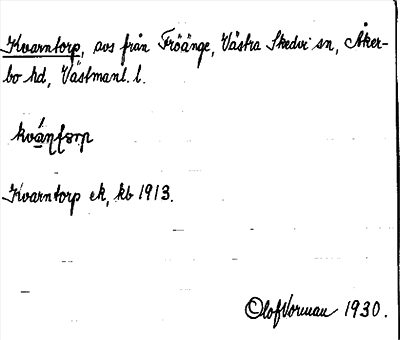 Kvarntorp, avs från Fröänge, Västra Skedvi sn, Åker-
bo hd, Västmanl. l.
Kvarntorp ek, kb 1913.
Olof Vorman 1930.